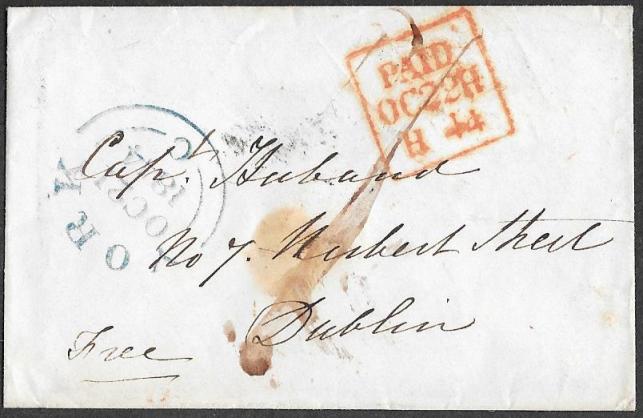 PAID
OC22H
H 44
CORK
OC
18
Capt. Huband
No 7. Herbert Street
Dublin
Free